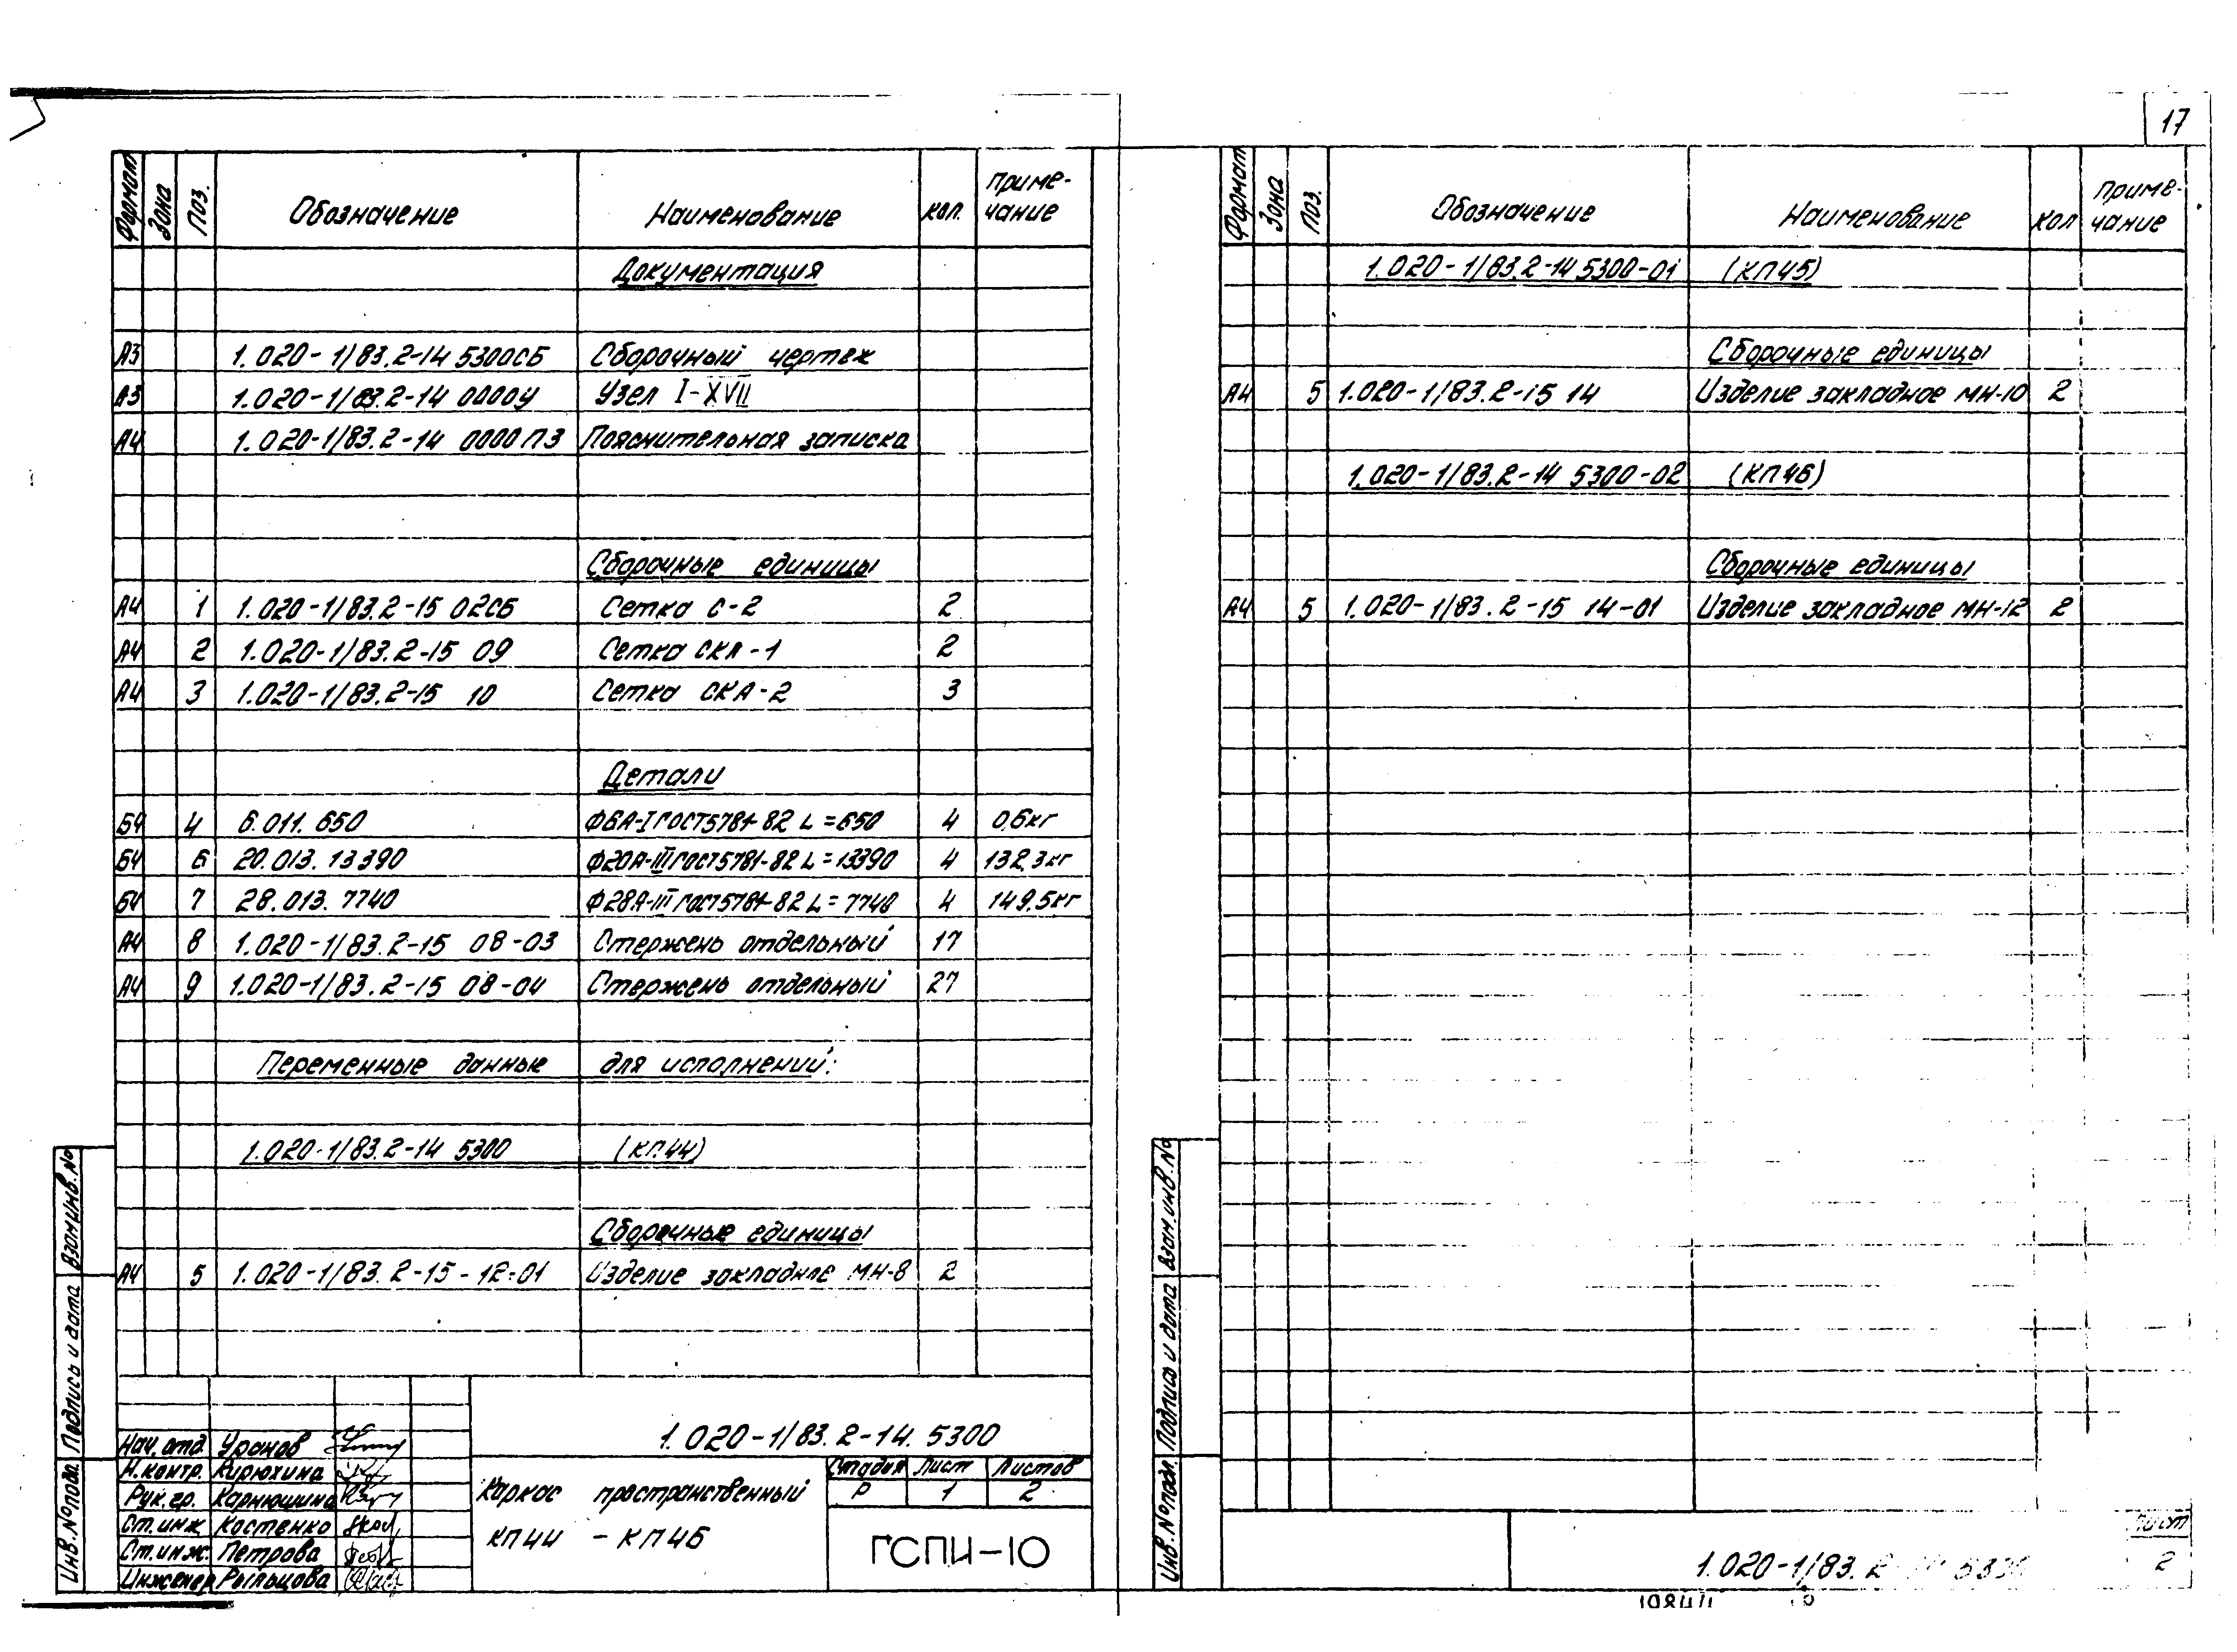 17
Формат Зона Поз. Обозначение Наименование Кол. Приме-
чание
Документация
А3 1.020-1/83.2-14 5300СБ Сборочный чертеж
А3 1.020-1/83.2-14 0000У Узел I-XVII
А4 1.020-1/83.2-14 0000ПЗ Пояснительная записка
Сборочные единицы
А4 1 1.020-1/83.2-15 02СБ Сетка С-2 2
А4 2 1.020-1/83.2-15 09 Сетка СКА-1 2
А4 3 1.020-1/83.2-15 10 Сетка СКА-2 3
Детали
БЧ 4 6.011.650 Ф6А-I ГОСТ5781-82 L=650 4 0,6кг
БЧ 6 20.013.13390 Ф20А-III ГОСТ5781-82 L=13390 4 132,3кг
БЧ 7 28.013.7740 Ф28А-III ГОСТ5781-82 L=7740 4 149.5кг
А4 8 1.020-1/83.2-15 08-03 Стержень отдельный 17
А4 9 1.020-1/83.2-15 08-04 Стержень отдельный 27
Переменные данные для исполнений:
1.020-1/83.2-14 5300 (КП44)
Сборочные единицы
А4 5 1.020-1/83.2-15-12-01 Изделие закладное МН-8 2
Взам.инв.№
Подпись и дата
Инв.№подл.
1.020-1/83.2-14. 5300
Нач.отд. Уранов
Н.контр. Кирюхина
Рук.гр. Карнюшина
Ст.инж. Костенко
Ст.инж. Петрова
Инженер Рыльцова
Каркас пространственный
КП44 - КП46
Стадия Лист Листов
Р 1 2
ГСПИ-10
Формат Зона Поз. Обозначение Наименование Кол Приме-
чание
1.020-1/83.2-14 5300-01 (КП45)
Сборочные единицы
А4 5 1.020-1/83.2-15 14 Изделие закладное МН-10 2
1.020-1/83.2-14 5300-02 (КП46)
Сборочные единицы
А4 5 1.020-1/83.2-15 14-01 Изделие закладное МН-12 2
Взам.инв.№
Подпись и дата
Инв.№подл.
1.020-1/83.2
Лист
2